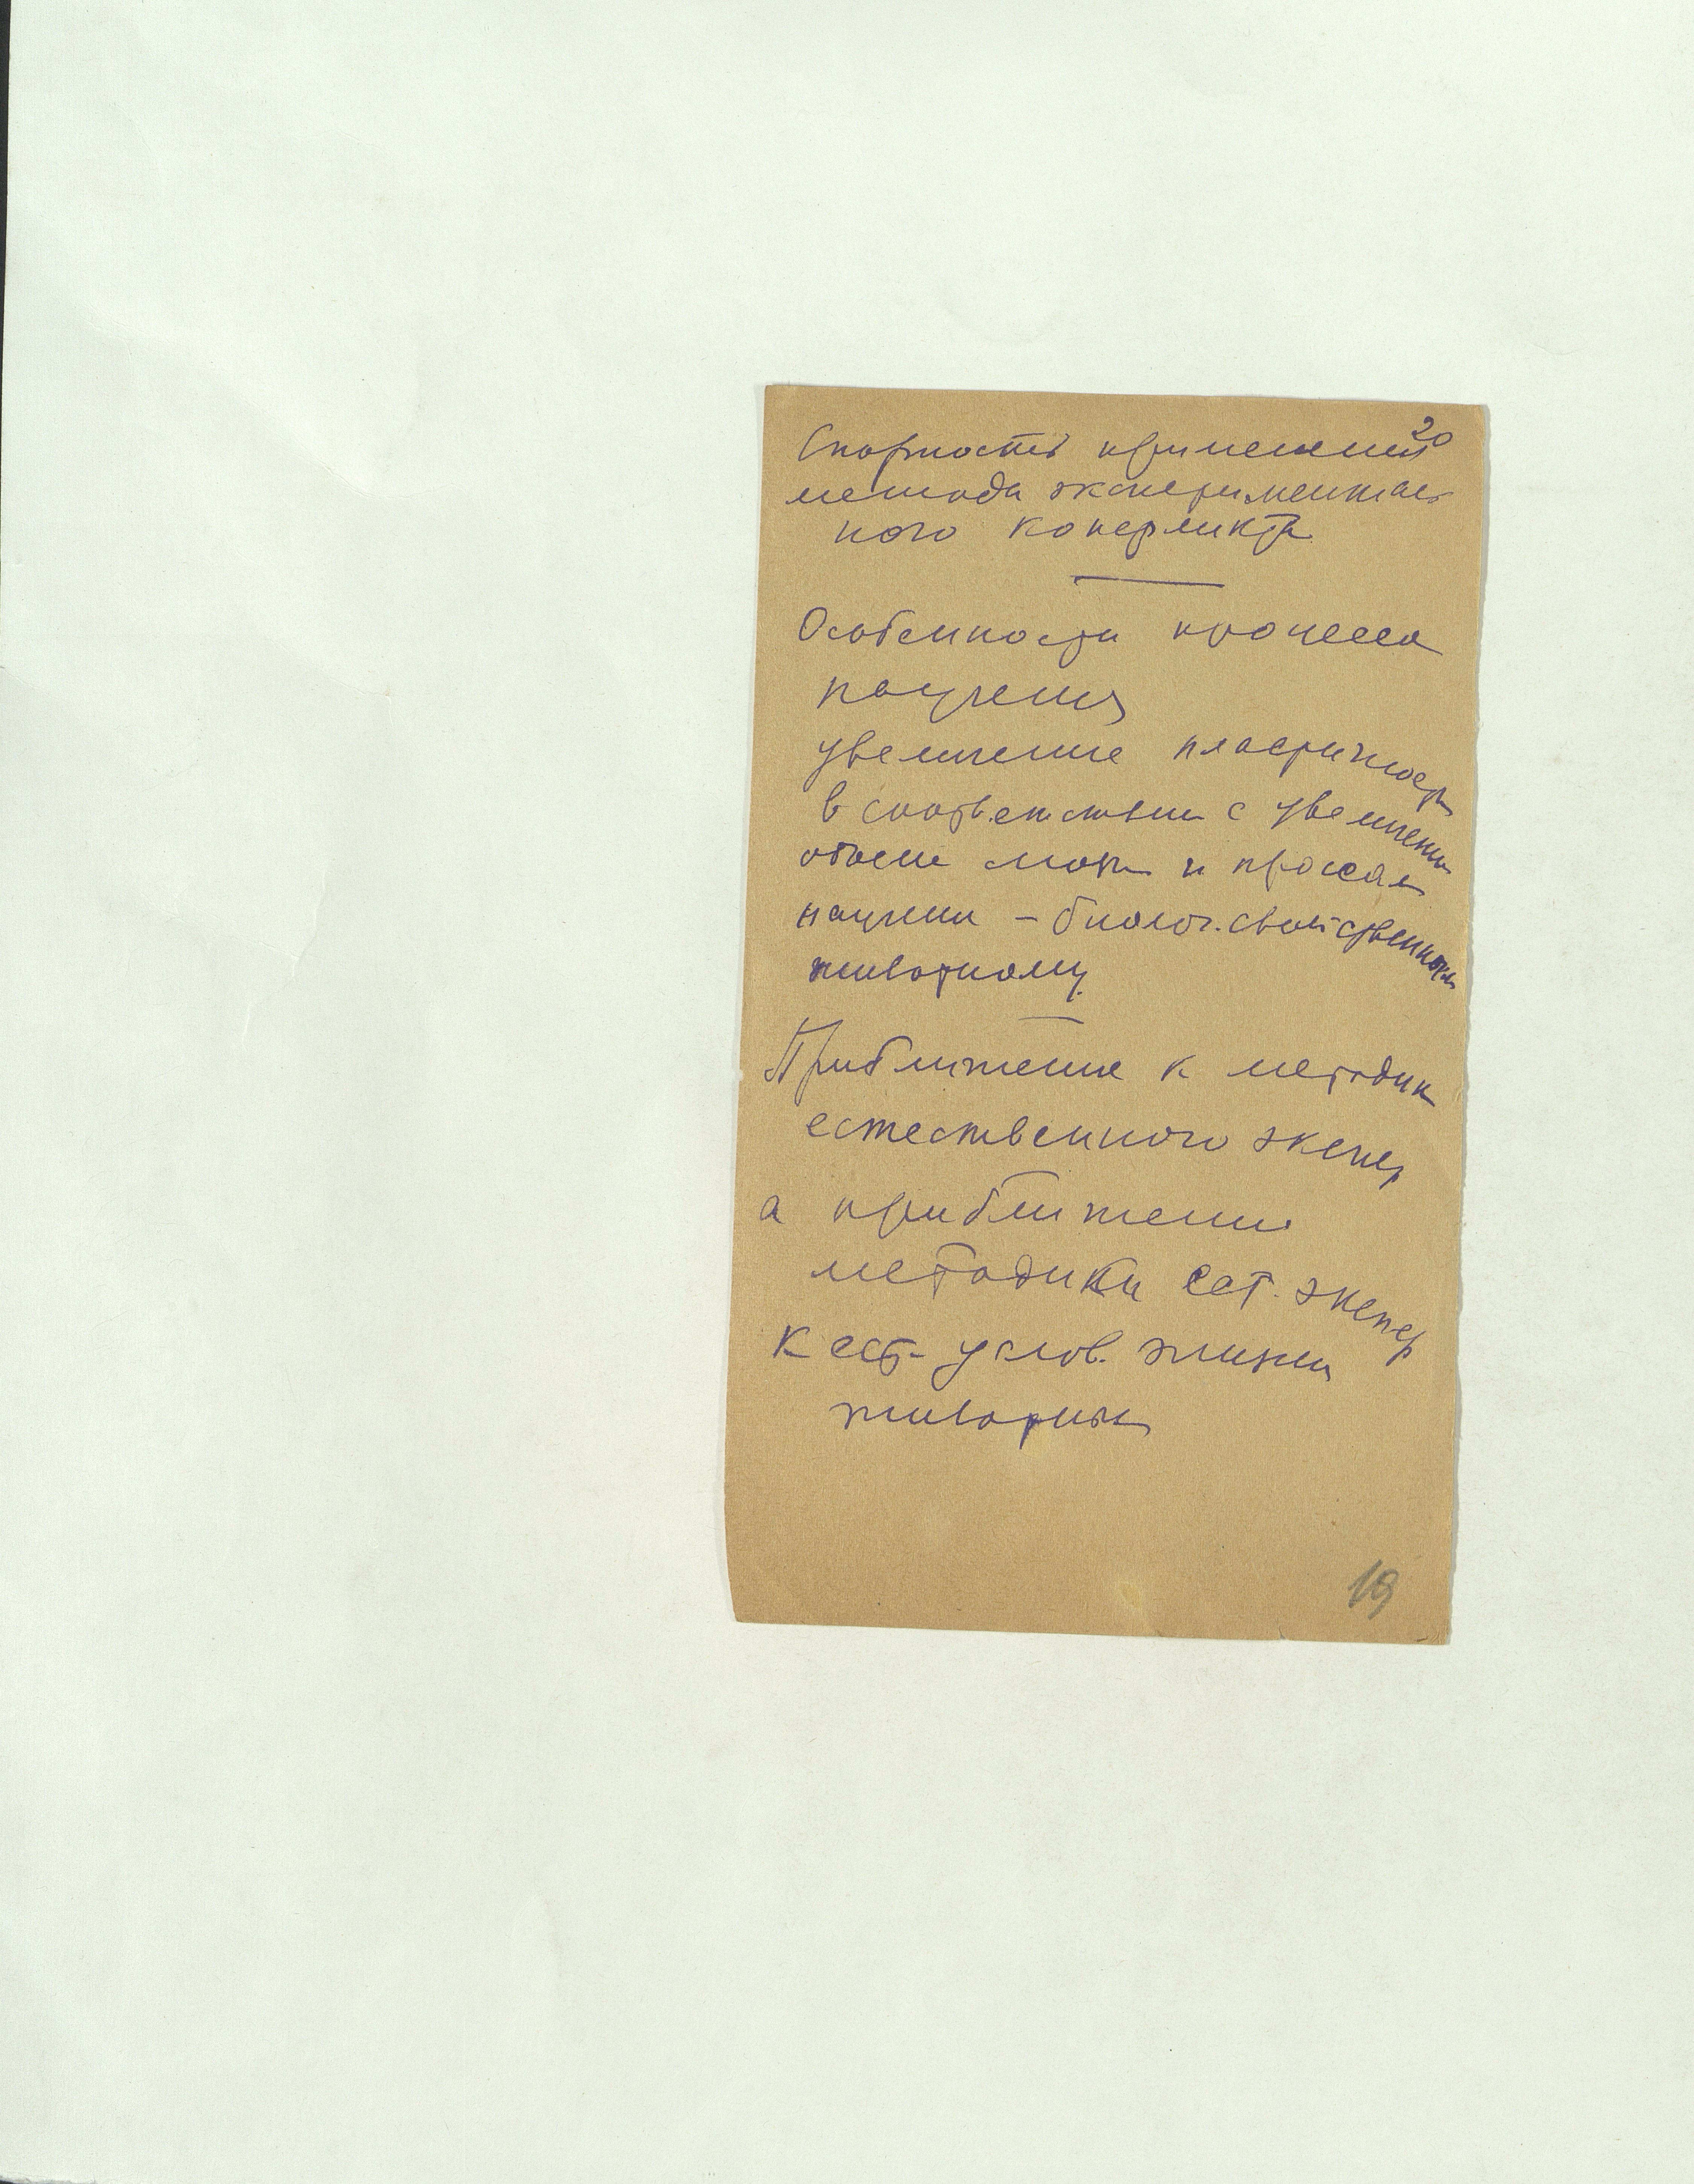 20
Спорность применения
метода эксперименталь
ного конфликта
Особенности процесса
научения
увеличение пластичности
в соответствии с увеличени
объема мозга и процессам
научения – биолог. свойственным
животному
Приближение к методик
естественного экспер
а приближение
методики ест. экспер
к ест. услов. жизни
животных
19